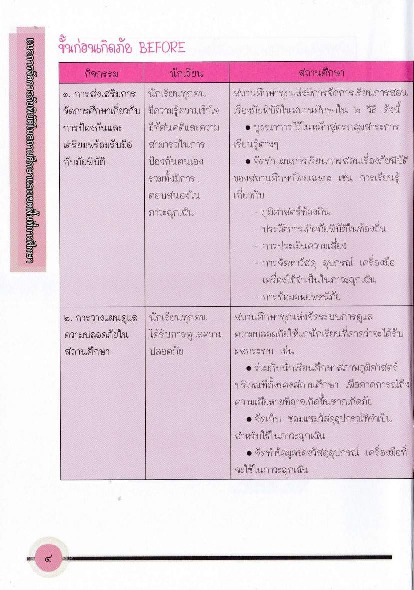 ขั้นก่อนเกิดภัย BEFORE
กิจกรรม
นักเรียน
สถานศึกษา
๑. การส่งเสริมการ
จัดการศึกษาเกี่ยวกับ
การป้องกันและ
เตรียมพร้อมรับมือ
กับภัยพิบัติ
นักเรียนทุกคน
มีความรู้ความเข้าใจ
มีทัศนคติและความ
สามารถในการ
ป้องกันตนเอง
รวมทั้งมีการ
ตอบสนองใน
ภาวะฉุกเฉิน
สถานศึกษาทุกแห่งมีการจัดการเรียนการสอน
เรื่องภัยพิบัติในสถานศึกษาใน ๒ วิธี ดังนี้
● บูรณาการไว้ในหลักสูตรกลุ่มสาระการ
เรียนรู้ต่างๆ
● จัดทำแผนการเรียนการสอนเรื่องภัยพิบัติ
ของสถานศึกษาโดยเฉพาะ เช่น การเรียนรู้
เกี่ยวกับ
- ภูมิศาสตร์ท้องถิ่น
ประวัติการเกิดภัยพิบัติในท้องถิ่น
- การประเมินความเสี่ยง
- การจัดหาวัสดุ อุปกรณ์ เครื่องมือ
เครื่องใช้ที่จำเป็นในภาวะฉุกเฉิน
- การซ้อมอพยพหนีภัย
๒. การวางแผนดูแล
ความปลอดภัยใน
สถานศึกษา
นักเรียนทุกคน
ได้รับการดูแลความ
ปลอดภัย
สถานศึกษาทุกแห่งจัดระบบการดูแล
ความปลอดภัยให้แก่นักเรียนที่คาดว่าจะได้รับ
ผลกระทบ เช่น
● ร่วมกับนักเรียนศึกษาสภาพภูมิศาสตร์
บริเวณที่ตั้งของสถานศึกษา เพื่อคาดการณ์ถึง
ความเสียหายที่อาจเกิดขึ้นหากเกิดภัย
● จัดเก็บ ซ่อมแซมวัสดุอุปกรณ์ที่จำเป็น
สำหรับใช้ในภาวะฉุกเฉิน
● จัดทำข้อมูลของวัสดุอุปกรณ์ เครื่องมือที่
จะใช้ในภาวะฉุกเฉิน
๔